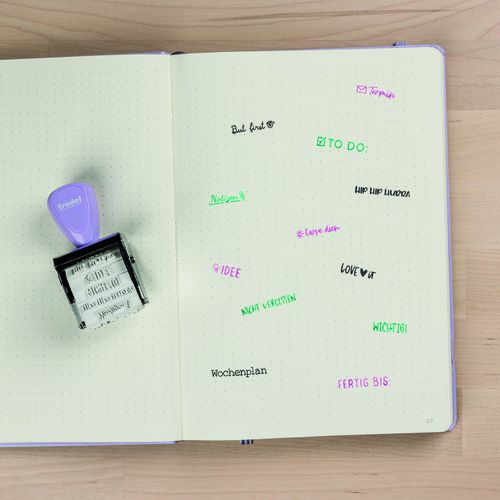 trodat
Termin
But first
TO DO:
Notizen
HIP HIP HURRA
#Carpe diem
IDEE
LOVE IT
NICHT VERGESSEN
WICHTIG!
Wochenplan
FERTIG BIS: